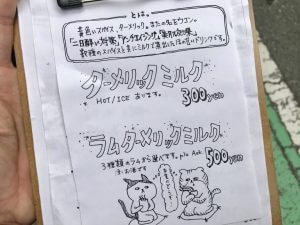 とは。
黄色いスパイス、ターメリック。またの名をウコン。
「二日酔い対策」「アンチエイジング」「美肌効果」
最強のスパイスと共にミルクで煮出したほの甘いドリンクです。
ターメリックミルク
HOT/ICE あります。 300yen
ラムターメリックミルク
3種類のラムから選べです。plz Ask. 500yen